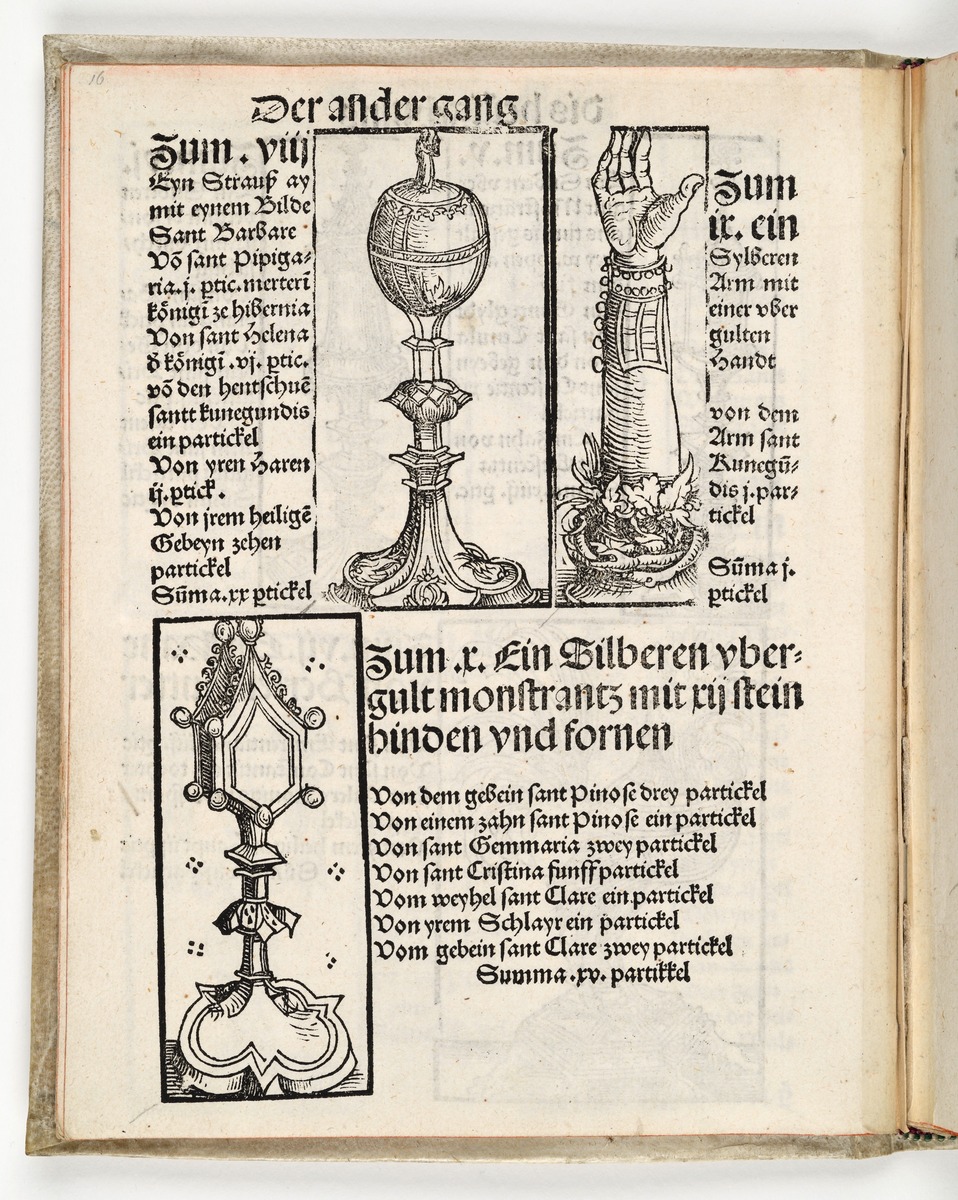 16
Der ander gang
Zum . viij
Eyn Strauß ay
mit eynem Bilde
Sant Barbare
Võ sant Pipiga⸗
ria.j. ꝑtic.merterī
königī ze hibernia
Von sant Helena
ð königī .vj. ꝑtic.
võ den hentschuẽ
santt kunegundis
ein partickel
Von yren Haren
ij.ꝑtick.
Von jrem heiligẽ
Gebeyn zehen
partickel
Sũma.xx ꝑtickel
Zum
ix. ein
Sylberen
Arm mit
einer vber
gulten
Handt
von dem
Arm sant
Kunegũ⸗
dis j.par⸗
tickel
Sũma j.
ꝑtickel
Zum .x. Ein Silberen vber⸗
gult monstrantz mit xij stein
hinden vnd fornen
Von dem gebein sant Pinose drey partickel
Von einem zahn sant Pinose ein partickel
Von sant Gemmaria zwey partickel
Von sant Cristina funff partickel
Vom weyhel sant Clare ein partickel
Von yrem Schlayr ein partickel
Vom gebein sant Clare zwey partickel
Summa .xv. partikkel